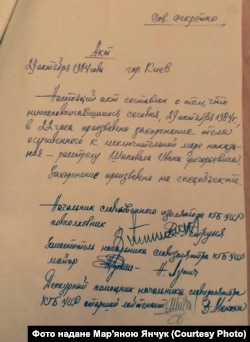 Сов. секретно
Акт
29 октября 1984 года гор. Киев
Настоящий акт составлен о том, что
нижеподписавшимися сегодня, 29 октября 1984 г.
в 22 часа произведено захоронение тела
осужденного к исключительной мере наказа-
ния – расстрелу
Захоронение произведено на спецобъекте
Начальник следственного изолятора КГБ УССР
подполковник Петруня
Заместитель начальника следизолятора КГБ УССР
майор
Дежурный помощник начальника следизолятора
КГБ УССР старший лейтенант
Фото надане Мар'яною Янчук (Courtesy Photo)